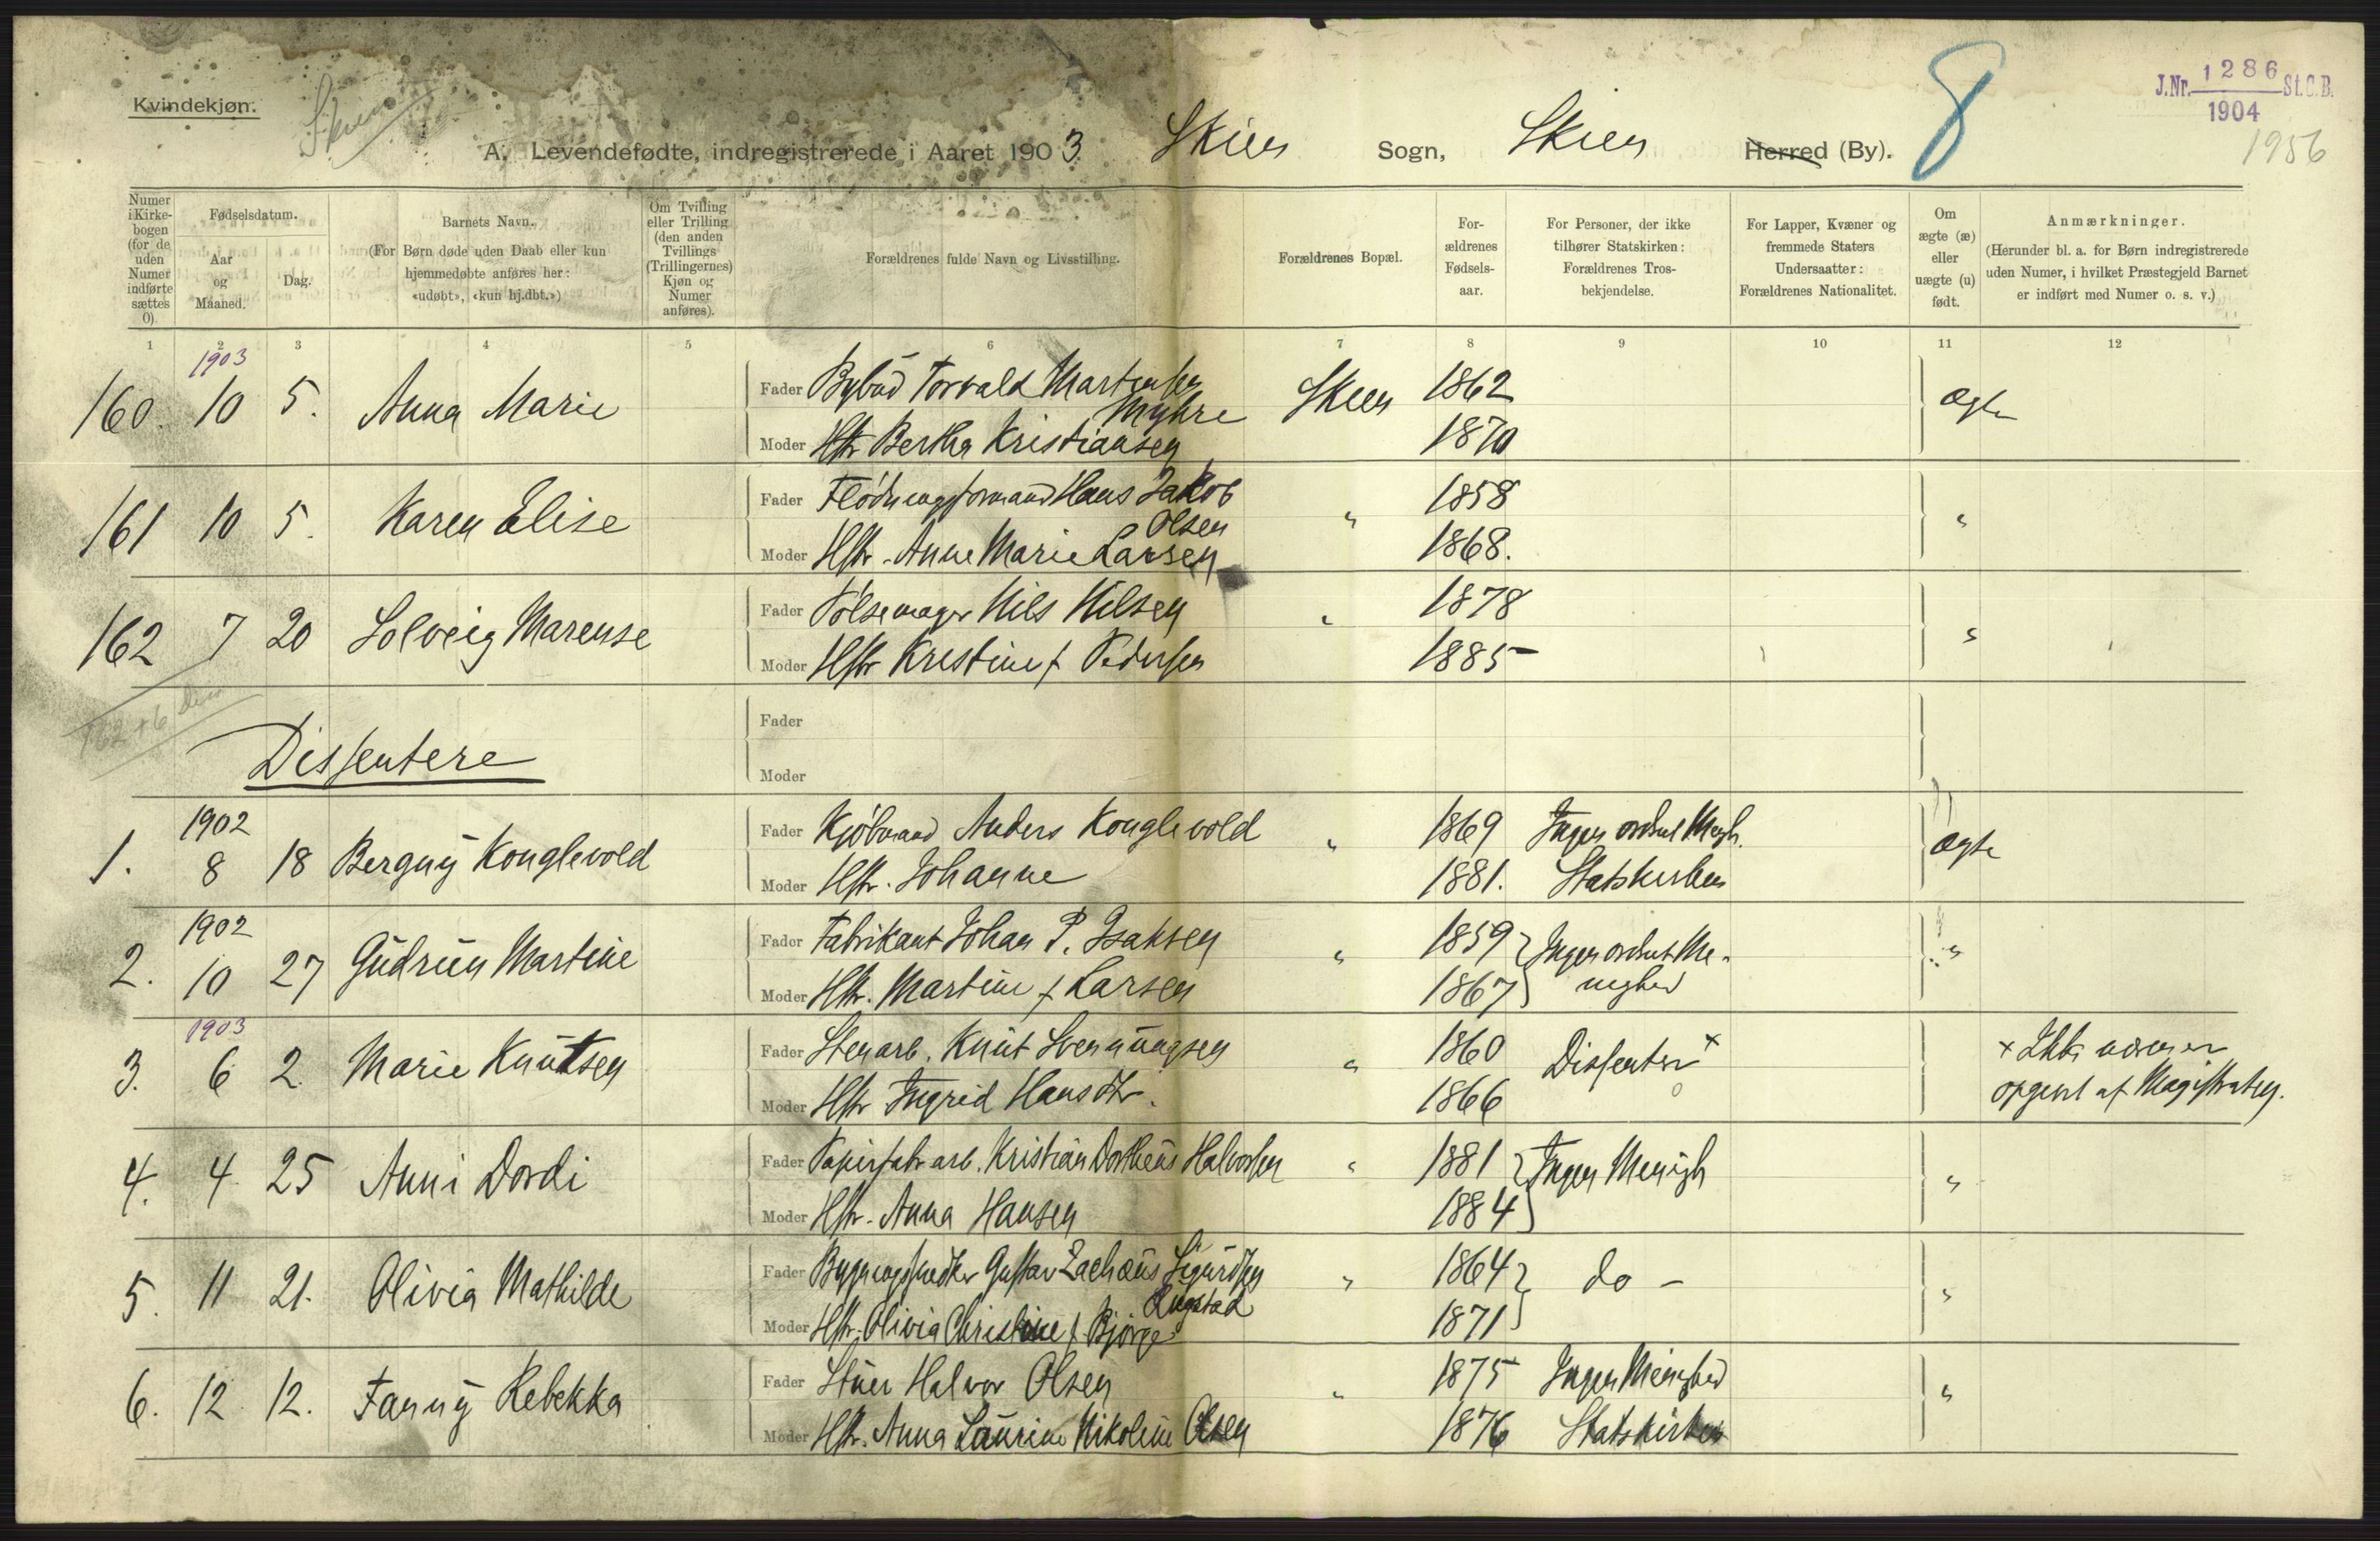 Kvindekjøn.
Skien
A. Levendefødte, indregistrerede i Aaret 1903. Skien Sogn, Skien Herred (By).
8
J.Nr. 1286 St.C.B.
1904
1956
Numer i Kirkebogen (for de uden Numer indførte sættes 0).
Fødselsdatum.
Aar og Maaned.
Dag.
Barnets Navn.
(For Børn døde uden Daab eller kun hjemmedøbte anføres her: «udøbt», «kun hj.dbt.»)
Om Tvilling eller Trilling (den anden Tvillings (Trillingernes) Kjøn og Numer anføres).
Forældrenes fulde Navn og Livsstilling.
Forældrenes Bopæl.
Forældrenes Fødselsaar.
For Personer, der ikke tilhører Statskirken: Forældrenes Trosbekjendelse.
For Lapper, Kvæner og fremmede Staters Undersaatter: Forældrenes Nationalitet.
Om ægte (æ) eller uægte (u) født.
Anmærkninger.
(Herunder bl. a. for Børn indregistrerede uden Numer, i hvilket Præstegjeld Barnet er indført med Numer o. s. v.)
1 2 3 4 5 6 7 8 9 10 11 12
1903
160. 10 5. Anna Marie Fader Bybud Torvald Martensen Myhre Skien 1862 ægte
Moder Hstr Bertha Kristiansen 1870
161 10 5. Karen Elise Fader Flødningsformand Hans Jakob Olsen " 1858 "
Moder Hstr. Anne Marie Larsen 1868.
162 7 20 Solveig Marense Fader Pølsemager Nils Nilsen " 1878 "
Moder Hstr Kristine f Pedersen 1885
162+6 diss
Fader
Dissentere
Moder
1902
1. 8 18 Bergny Konglevold Fader Kjøbmand Anders Konglevold " 1869 Ingen ordnet Mengh. ægte
Moder Hstr. Johanne 1881. Statskirken
1902
2. 10 27 Gudrun Martine Fader Fabrikant Johan P. Isaksen " 1859 Ingen ordnet Me- "
Moder Hstr. Martine f Larsen 1867 nighed
1903
3. 6 2. Marie Knutsen Fader Stenarb. Knut Svennungsen " 1860 Dissenter x x Ikke nærmere
Moder Hstr Ingrid Hansdtr. 1866 opgivet af Magistraten.
4. 4 25 Anni Dordi Fader Papirfabr arb. Kristian Dortheus Halvorsen " 1881 Ingen Menigh "
Moder Hstr. Anna Hansen 1884
5. 11 21. Olivia Mathilde Fader Bygningssnedker Gustav Zachæus Sigurdsen Lugstad " 1864 do - "
Moder Hstr. Olivia Christine f Bjørge 1871
6. 12 12. Fanny Rebekka Fader Stuer Halvor Olsen " 1875 Ingen Menighed "
Moder Hstr. Anna Laurine Nikoline Olsen 1876 Statskirken